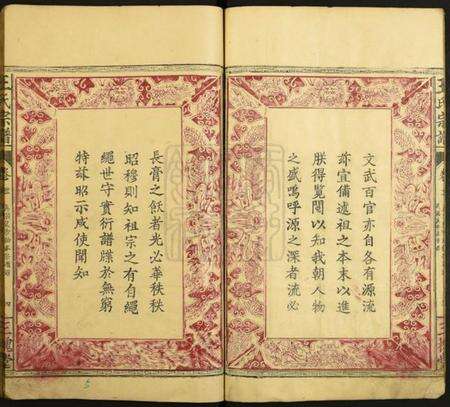 文武百官亦自各有源流
亦宜備述祖之本末以進
朕得覧閱以知我朝人物
之盛嗚呼源之深者流必
長膏之飫者光必華秩秩
昭穆則知祖宗之有自繩
繩世守實衍譜牒於無窮
特兹昭示咸使聞知
王氏宗譜
卷首
四
三槐堂